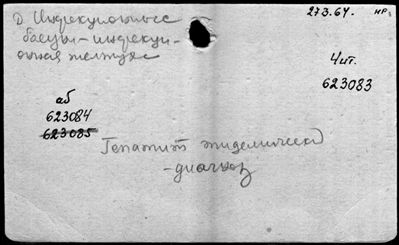 д. Инфекционные
273.64. нр.
- инфекци-
онная желтуха
Чит.
623083
аб
623084
623085
Гепатит эпидемический
- диагноз